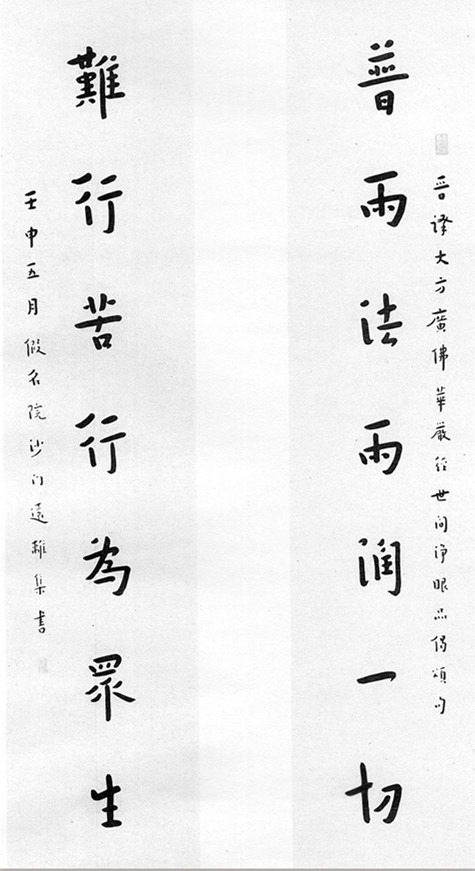 晉譯大方廣佛華嚴經世間淨眼品偈頌句
普雨法雨潤一切
難行苦行為眾生
壬申五月假名院沙門遠離集書